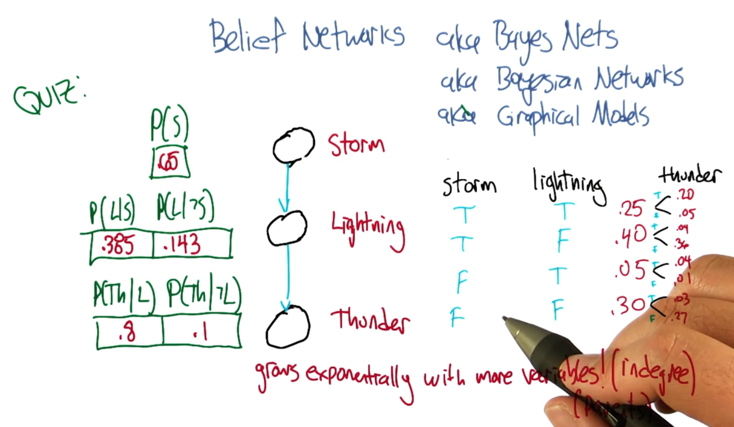 Belief Networks aka Bayes Nets
aka Bayesian Networks
aka Graphical Models
QUIZ:
P(S)
.65
Storm
P(L|S) P(L|¬S)
.385 .143
Lightning
P(Th|L) P(Th|¬L)
.8 .1
Thunder
storm lightning thunder
T T .25 T .20
F .05
T F .40 T .04
F .36
F T .05 T .04
F .01
F F .30 T .03
F .27
grows exponentially with more variables! (indegree)